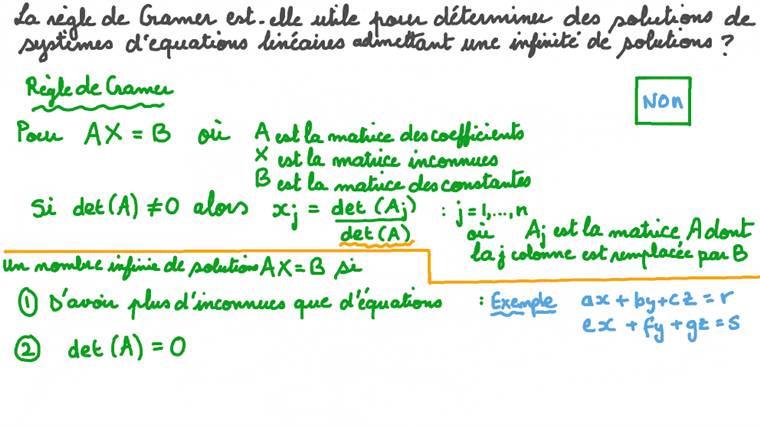 La règle de Cramer est-elle utile pour déterminer des solutions de
systèmes d'équations linéaires admettant une infinité de solutions ?
Règle de Cramer
NON
Pour AX = B où A est la matrice des coefficients
X est la matrice inconnues
B est la matrice des constantes
Si det(A) ≠ 0 alors xj = det(Aj) / det(A) : j = 1, ..., n
où Aj est la matrice A dont
la j colonne est remplacée par B
Un nombre infinie de solutions AX = B si
① D'avoir plus d'inconnues que d'équations : Exemple ax + by + cz = r
ex + fy + gz = s
② det(A) = 0